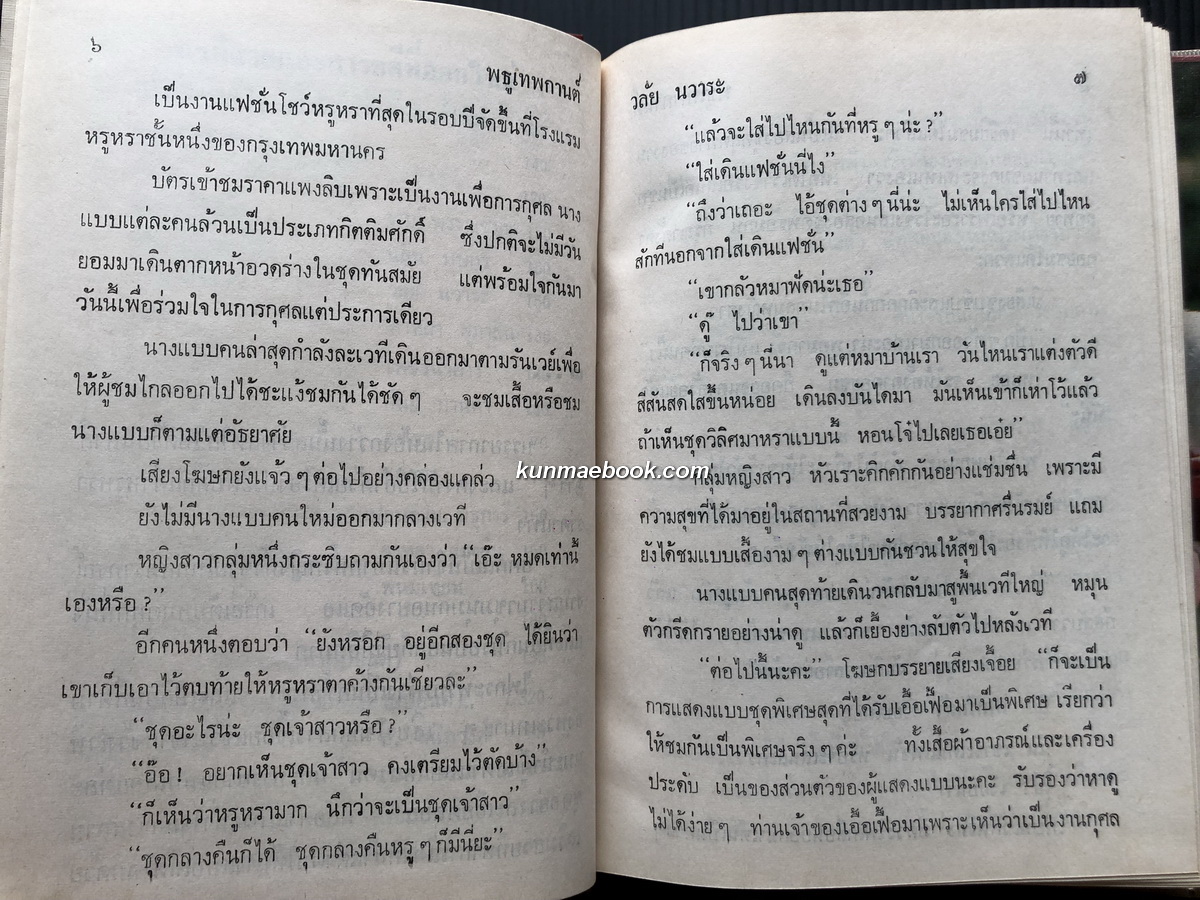 ๖
พธูเทพกานต์
เป็นงานแฟชั่นโชว์หรูหราที่สุดในรอบปีจัดขึ้นที่โรงแรม
หรูหราชั้นหนึ่งของกรุงเทพมหานคร
บัตรเข้าชมราคาแพงลิบเพราะเป็นงานเพื่อการกุศล นาง
แบบแต่ละคนล้วนเป็นประเภทกิตติมศักดิ์ ซึ่งปกติจะไม่มีวัน
ยอมมาเดินตากหน้าอวดร่างในชุดทันสมัย แต่พร้อมใจกันมา
วันนี้เพื่อร่วมใจในการกุศลแต่ประการเดียว
นางแบบคนล่าสุดกำลังละเวทีเดินออกมาตามรันเวย์เพื่อ
ให้ผู้ชมไกลออกไปได้ชะแง้ชมกันได้ชัด ๆ จะชมเสื้อหรือชม
นางแบบก็ตามแต่อัธยาศัย
เสียงโฆษกยังแจ้ว ๆ ต่อไปอย่างคล่องแคล่ว
ยังไม่มีนางแบบคนใหม่ออกมากลางเวที
หญิงสาวกลุ่มหนึ่งกระซิบถามกันเองว่า “เอ๊ะ หมดเท่านี้
เองหรือ ?”
อีกคนหนึ่งตอบว่า “ยังหรอก อยู่อีกสองชุด ได้ยินว่า
เขาเก็บเอาไว้ตบท้ายให้หรูหราตาค้างกันเชียวละ”
“ชุดอะไรน่ะ ชุดเจ้าสาวหรือ ?”
“อ๊อ ! อยากเห็นชุดเจ้าสาว คงเตรียมไว้ตัดบ้าง”
“ก็เห็นว่าหรูหรามาก นึกว่าจะเป็นชุดเจ้าสาว”
“ชุดกลางคืนก็ได้ ชุดกลางคืนหรู ๆ ก็มีนี่ยะ”
วลัย นวาระ
๗
“แล้วจะใส่ไปไหนกันที่หรู ๆ น่ะ ?”
“ใส่เดินแฟชั่นนี่ไง”
“ถึงว่าเถอะ ไอ้ชุดต่าง ๆ นี่น่ะ ไม่เห็นใครใส่ไปไหน
สักทีนอกจากใส่เดินแฟชั่น”
“เขากลัวหมาฟัดน่ะเธอ”
“ดู๊ ไปว่าเขา”
“ก็จริง ๆ นี่นา ดูแต่หมาบ้านเรา วันไหนเราแต่งตัวดี
สีสันสดใสขึ้นหน่อย เดินลงบันไดมา มันเห็นเข้าก็เห่าโว้แล้ว
ถ้าเห็นชุดวิลิศมาหราแบบนี้ หอนโจ๋ไปเลยเธอเอ๋ย”
กลุ่มหญิงสาว หัวเราะคิกคักกันอย่างแช่มชื่น เพราะมี
ความสุขที่ได้มาอยู่ในสถานที่สวยงาม บรรยากาศรื่นรมย์ แถม
ยังได้ชมแบบเสื้องาม ๆ ต่างแบบกันชวนให้สุขใจ
นางแบบคนสุดท้ายเดินวนกลับมาสู่พื้นเวทีใหญ่ หมุน
ตัวกรีดกรายอย่างน่าดู แล้วก็เยื้องย่างลับตัวไปหลังเวที
“ต่อไปนี้นะคะ” โฆษกบรรยายเสียงเจื้อย “ก็จะเป็น
การแสดงแบบชุดพิเศษสุดที่ได้รับเอื้อเฟื้อมาเป็นพิเศษ เรียกว่า
ให้ชมกันเป็นพิเศษจริง ๆ ค่ะ ทั้งเสื้อผ้าอาภรณ์และเครื่อง
ประดับ เป็นของส่วนตัวของผู้แสดงแบบนะคะ รับรองว่าหาดู
ไม่ได้ง่าย ๆ ท่านเจ้าของเอื้อเฟื้อมาเพราะเห็นว่าเป็นงานกุศล
kunmaebook.com